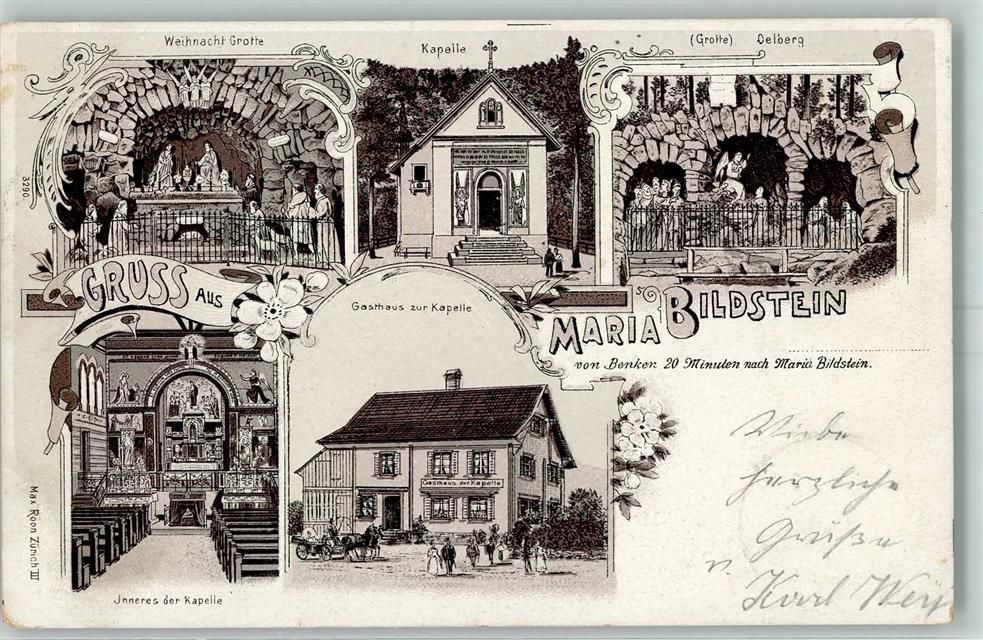 Weihnacht Grotte
Kapelle
(Grotte) Oelberg
3290
GRUSS AUS
Gasthaus zur Kapelle
MARIA BILDSTEIN
von Benken 20 Minuten nach Maria Bildstein.
Gasthaus zur Kapelle
Viele
herzliche
Grüße
v. Karl
Max Roon Zürich III
Jnneres der Kapelle